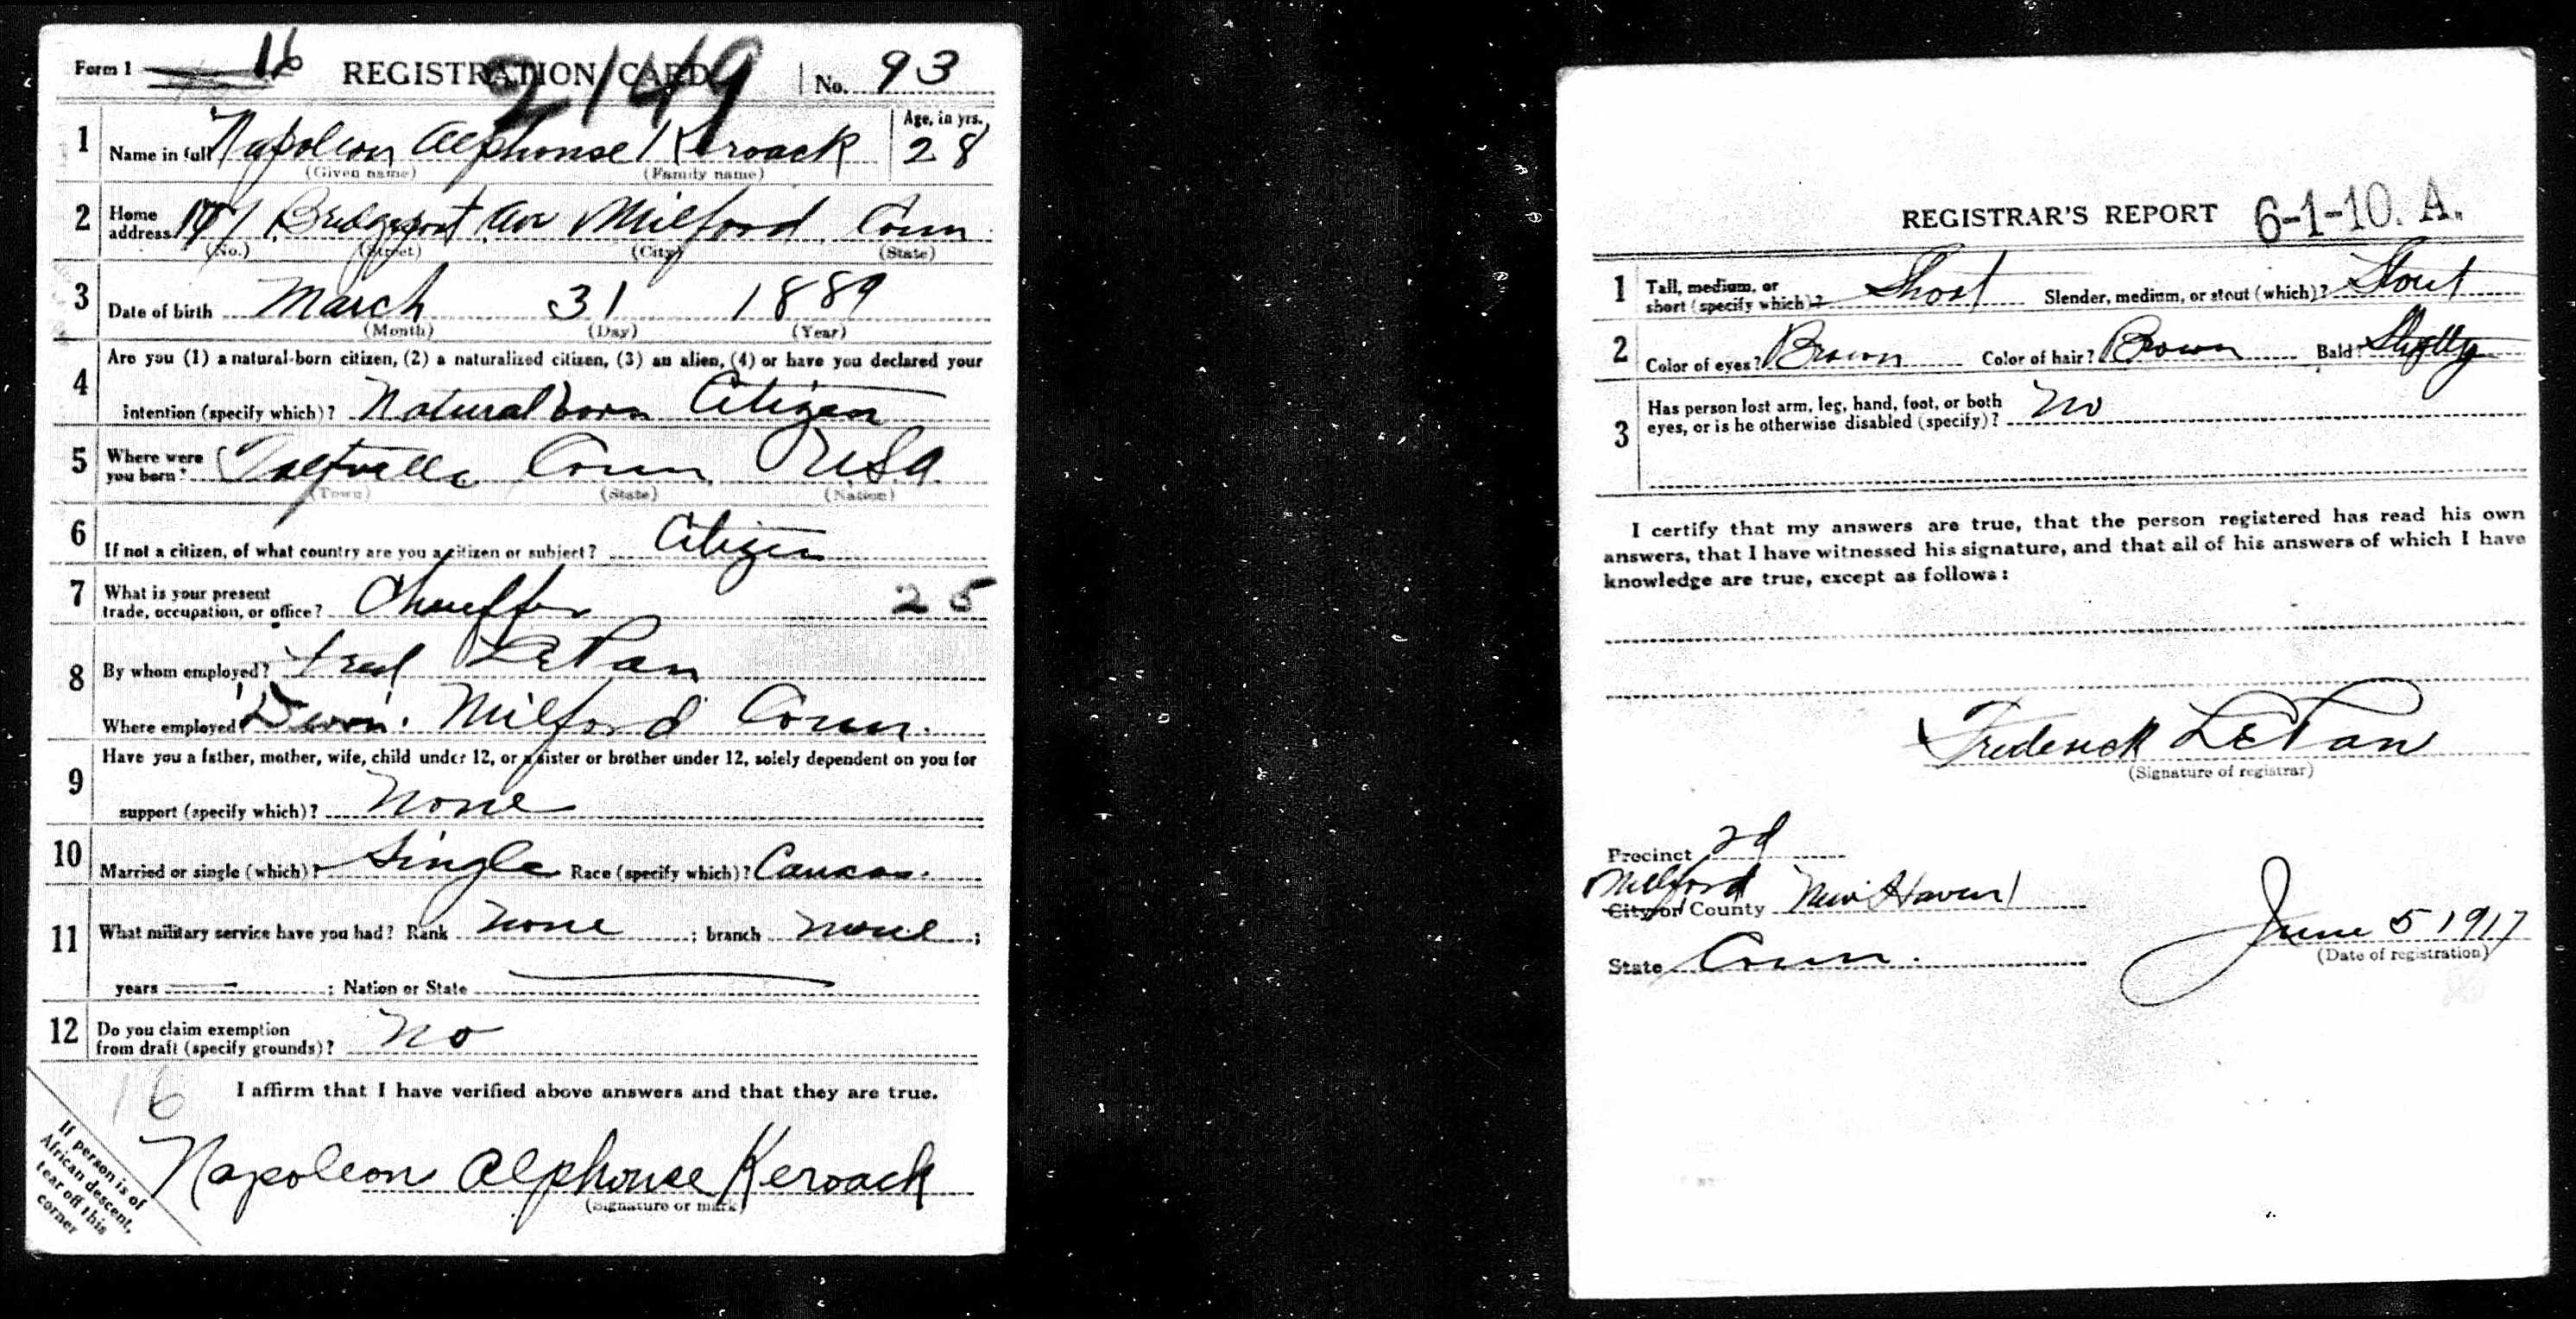 Form 1 16 REGISTRATION CARD 2149 No. 93
1 Name in full Napoleon Alphonse Keroack Age, in yrs. 28
(Given name) (Family name)
2 Home address Bridgeport Ave Milford Conn
(No.) (Street) (City) (State)
3 Date of birth March 31 1889
(Month) (Day) (Year)
4 Are you (1) a natural-born citizen, (2) a naturalized citizen, (3) an alien, (4) or have you declared your
intention (specify which)? Natural born Citizen
5 Where were you born? Taftville Conn U.S.A.
(Town) (State) (Nation)
6 If not a citizen, of what country are you a citizen or subject? Citizen
7 What is your present
trade, occupation, or office? Chauffer 25
8 By whom employed? Fred LePan
Where employed? Devon. Milford Conn.
9 Have you a father, mother, wife, child under 12, or a sister or brother under 12, solely dependent on you for
support (specify which)? None
10 Married or single (which)? Single Race (specify which)? Caucas.
11 What military service have you had? Rank None ; branch None ;
years ; Nation or State
12 Do you claim exemption
from draft (specify grounds)? No
16
I affirm that I have verified above answers and that they are true.
Napoleon Alphonse Keroack
(Signature or mark)
If person is of
African descent,
tear off this
corner
REGISTRAR'S REPORT 6-1-10. A.
1 Tall, medium, or
short (specify which)? Short Slender, medium, or stout (which)? Stout
2 Color of eyes? Brown Color of hair? Brown Bald? Slightly
3 Has person lost arm, leg, hand, foot, or both
eyes, or is he otherwise disabled (specify)? No
I certify that my answers are true, that the person registered has read his own
answers, that I have witnessed his signature, and that all of his answers of which I have
knowledge are true, except as follows:
Frederick LePan
(Signature of registrar)
Precinct 2d
Milford
City or County New Haven
State Conn. June 5 1917
(Date of registration)